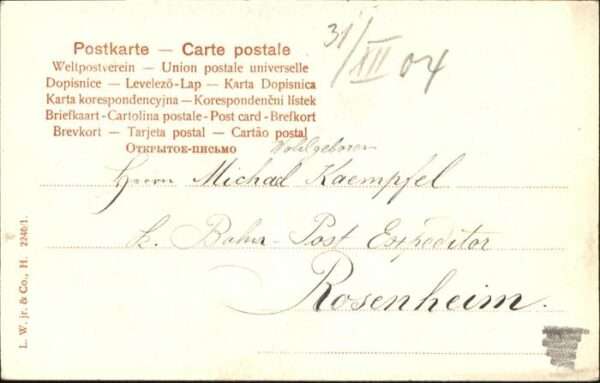 Postkarte — Carte postale
Weltpostverein — Union postale universelle
Dopisnice — Levelező-Lap — Karta Dopisnica
Karta korespondencyjna — Korespondenční lístek
Briefkaart - Cartolina postale - Post card - Brefkort
Brevkort — Tarjeta postal — Cartão postal
Открытое-письмо
31/XII 04
Wohlgeboren
Herrn Michael Kaempfel
k. Bahn-Post Expeditor
Rosenheim.
L. W. jr. & Co., H. 2240/1.